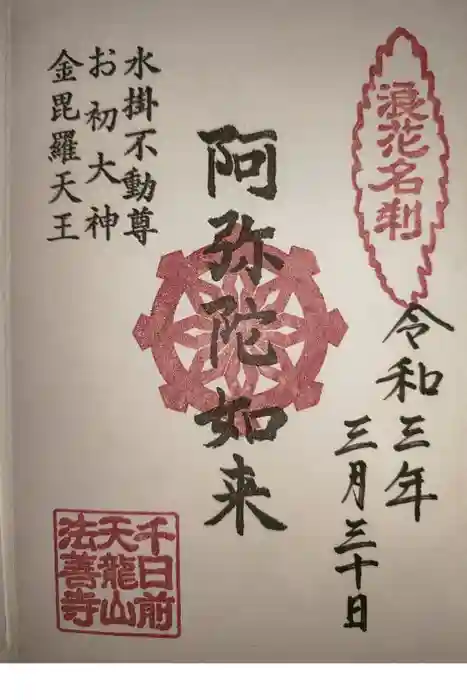 浪花名刹
令和三年
三月三十日
阿弥陀如来
水掛不動尊
お初大神
金毘羅天王
千日前
天龍山
法善寺